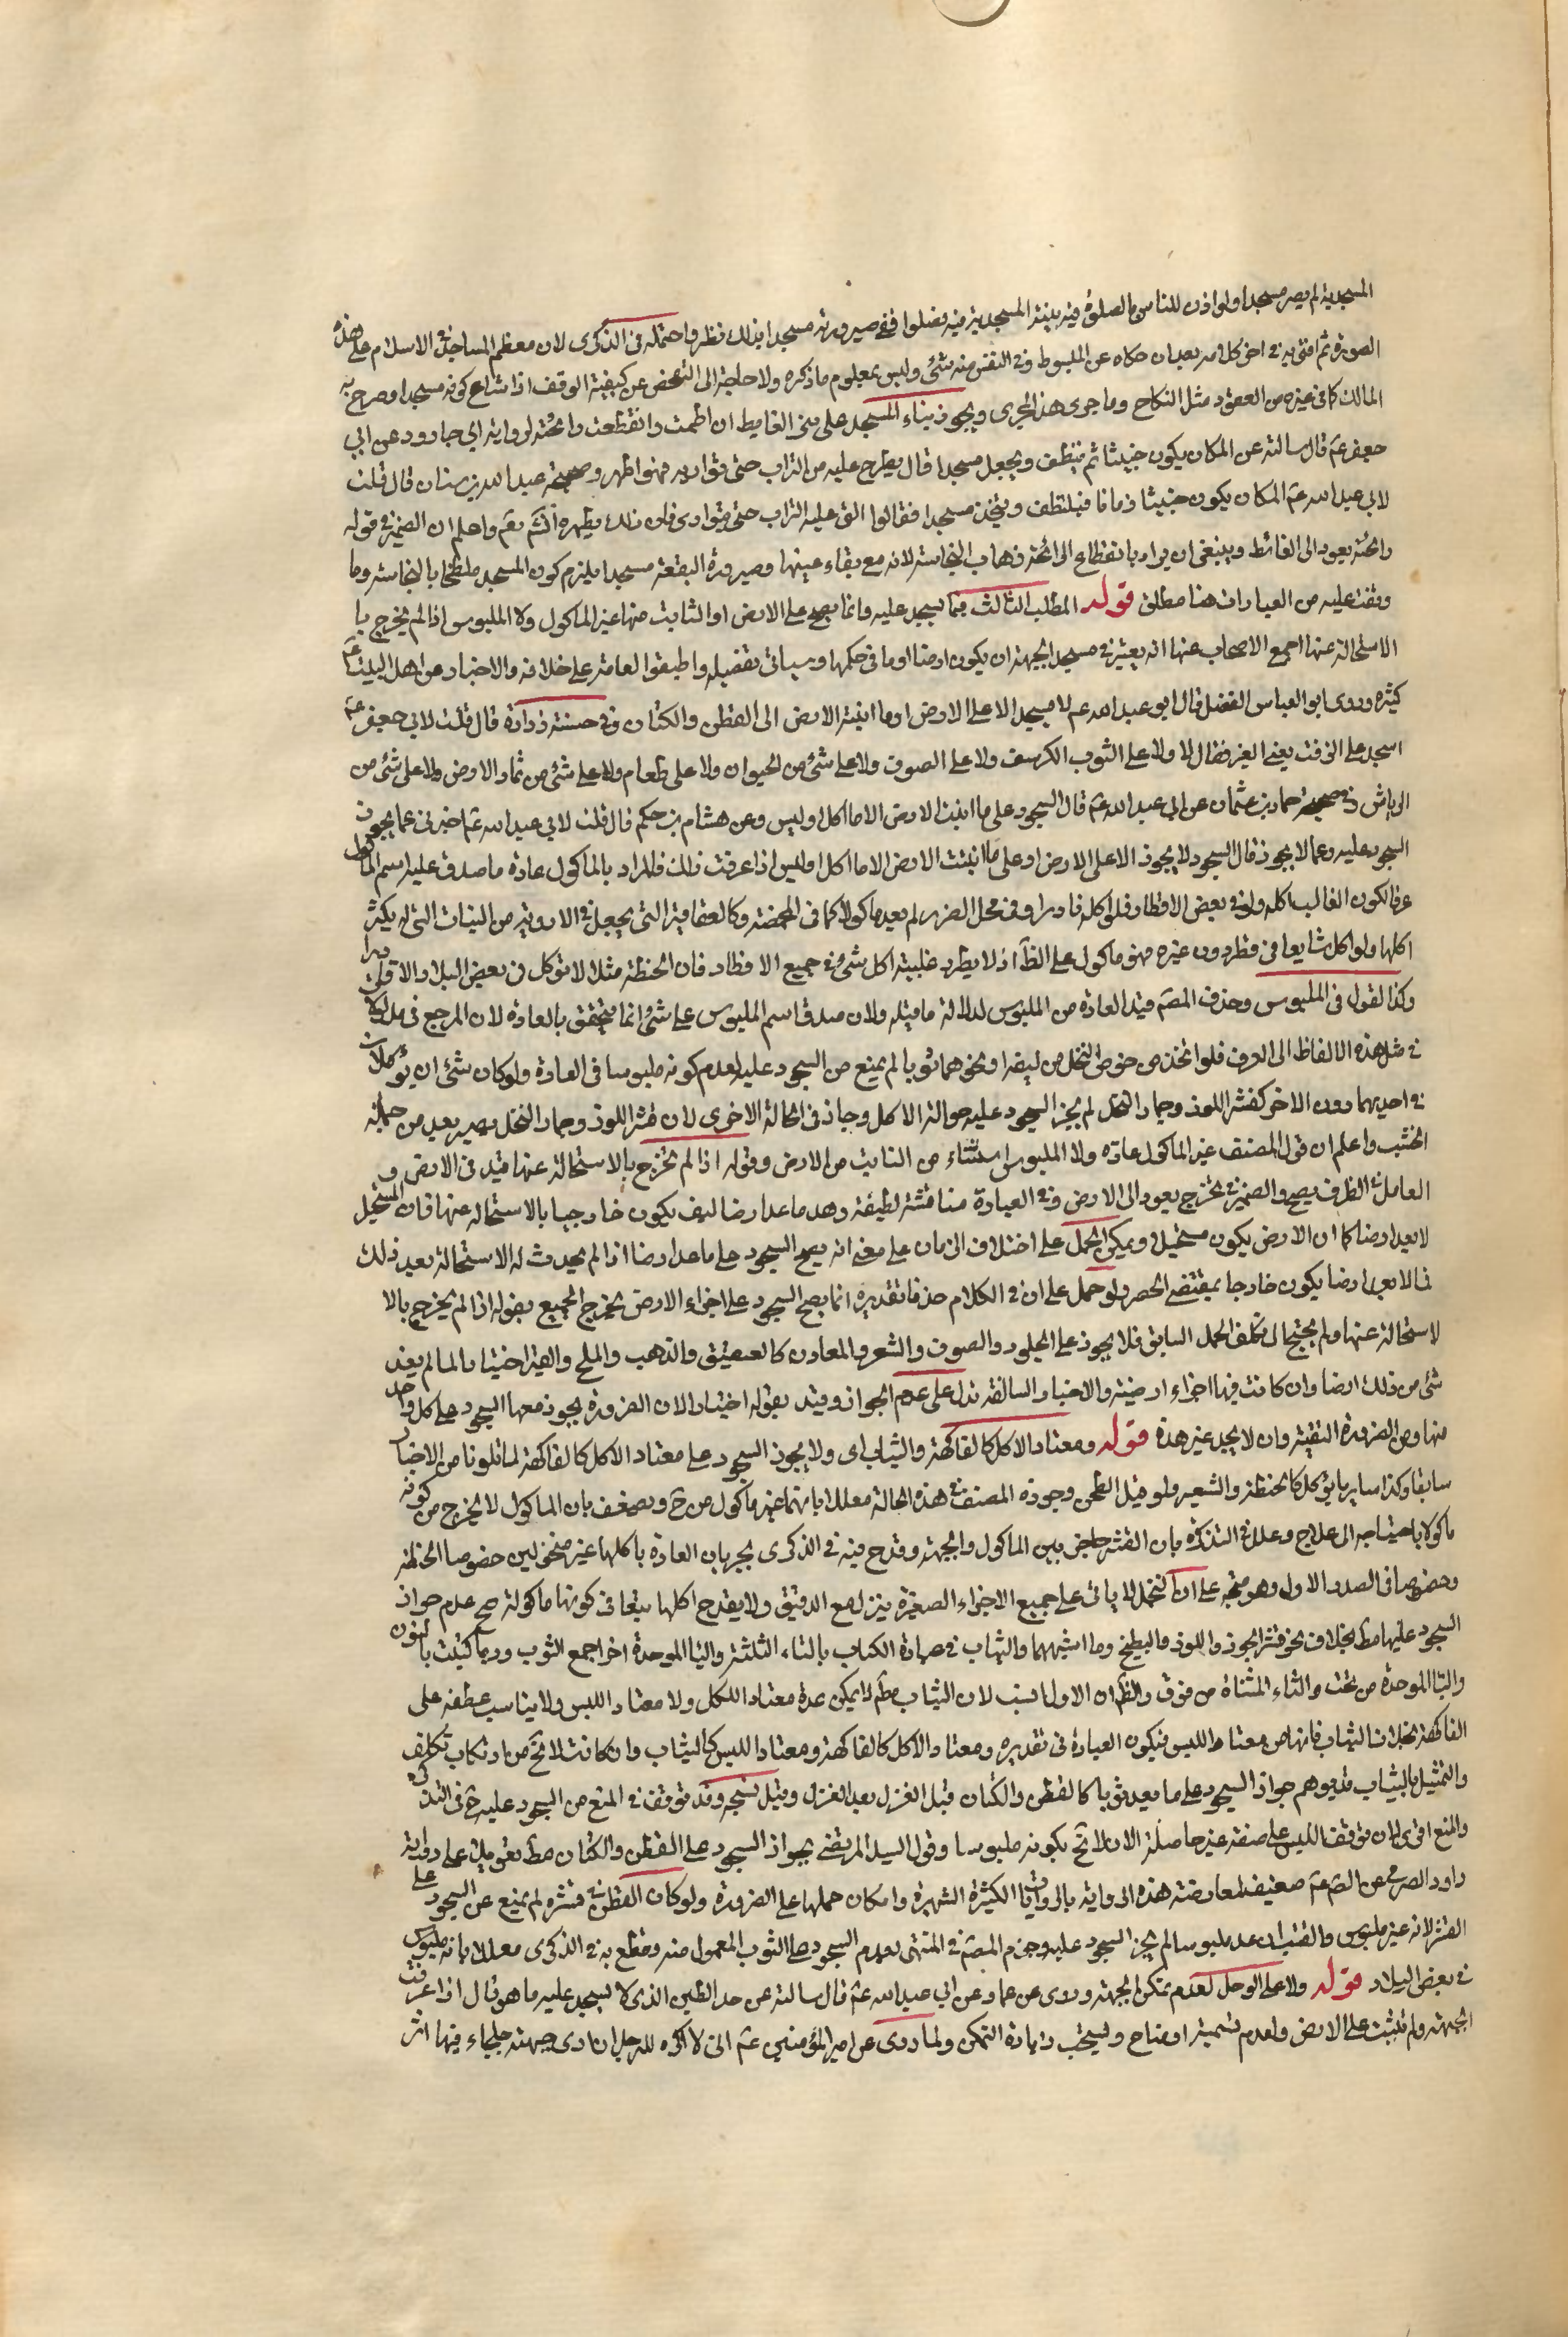 المسجدية لم يصر مسجدا ولو اذن للناس بالصلوة فيه بنية المسجدية فيه فصلوا ففي صيرورته مسجدا بذلك نظر واحتمله في الذكرى لان معظم المساجد في الاسلام على هذه
الصورة ثم افتى به في اخر كلامه بعد ان حكاه عن المبسوط وفي النفس منه شئ وليس بمعلوم ما ذكره ولا حاجة الى الفحص عن كيفية الوقف اذا شاع كونه مسجدا وصرح به
المالك كما في غيره من العقود مثل النكاح وما جرى هذا المجرى ويجوز بناء المسجد على بئر الغايط ان اطمت وانقطعت رائحته لرواية ابي جارود عن ابي
جعفر عم قال سالته عن المكان يكون خبيثا ثم ينظف ويجعل مسجدا قال يطرح عليه من التراب حتى تواريه فهو اطهر وصحيحة عبد الله بن سنان قال قلت
لابي عبد الله عم المكان يكون خبيثا زمانا فينظف ويتخذ مسجدا فقال الق عليه التراب حتى يتوارى فان ذلك يطهره انشم نعم واعلم ان الضمير في قوله
رائحته يعود الى الغائط وينبغي ان يراد بانقطاع الرائحة ذهاب النجاسة لانه مع بقاء عينها وصيرورة البقعة مسجدا يلزم كون المسجد ملطخا بالنجاسة وما
وقفت عليه من العبارات هنا مطلق قوله المطلب الثالث فيما يسجد عليه وانما يصح على الارض او النابت منها غير الماكول ولا الملبوس اذا لم يخرج با
الاستحالة عنها اجمع الاصحاب عنها انه يعتبر في مسجد الجبهة ان يكون ارضا او ما في حكمها وسياتي تفصيله واطبقوا العامة على خلافه والاخبار عن اهل البيت عم
كثيره وروى ابو العباس الفضل قال ابو عبد الله عم لا يسجد الا على الارض او ما انبتة الارض الى القطن والكتان وفي حسنة زرارة قال قلت لابي جعفر عم
اسجد على الزفت يعني القير فقال لا ولا على الثوب الكرسف ولا على الصوف ولا على شئ من الحيوان ولا على طعام ولا على شئ من ثمار الارض ولا على شئ من
الرياش وفي صحيحة حماد بن عثمان عن ابي عبد الله عم قال السجود على ما انبتت الارض الا ما اكل او لبس وعن هشام بن حكم قال قلت لابي عبد الله عم اخبرني عما يجوز
السجود عليه وعما لا يجوز قال السجود لا يجوز الا على الارض او على ما انبتت الارض الا ما اكل او لبس اذا عرفت ذلك فالمراد بالماكول عادة ما صدق عليه اسم الماكول
عرفا لكون الغالب اكله ولو في بعض الاقطار فلو اكله نادرا او في محل الضرر لم يعد ماكولا كما في المخمصة وكالعقاقير التي يجعل في الادوية من النبات التي لم يكثر
اكلها ولو اكل شايعا في قطر دون غيره فهو ماكول على الظآ اذ لا يطرد غلبة اكل شئ في جميع الاقطار فان الحنطة مثلا لا تؤكل في بعض البلاد الا نادرا
وكذا القول في الملبوس وحذف المصم قيد العادة من الملبوس لدلالة ما قبله ولان صدق اسم الملبوس على شئ انما يتحقق بالعادة لان المرجع في مدلولها
في مثل هذه الالفاظ الى العرف فلو اتخذ من خوص النخل من ليفه او نحوهما ثوبا لم يمنع من السجود عليه لعدم كونه ملبوسا في العادة ولو كان شئ ان يؤكلان
في احديهما دون الاخر كقشر اللوز وجمار النخل لم يجز السجود عليه حوالة الاكل وجاز في الحالة الاخرى لان قشر اللوز وجمار النخل يصير بعد من جملة
الخشب واعلم ان قول المصنف غير الماكول عادة ولا الملبوس استثناء من النابت من الارض وقوله اذا لم تخرج بالاستحالة عنها قيد في الارض و
العامل في الظرف يصح والضمير في تخرج يعود الى الارض وفي العبارة مناقشة لطيفة وهد ما عدا رضا ليف يكون خارجا بالاستحالة عنها فان المستحيل
لا يعد ارضا كما ان الارض يكون مستحيلا ويمكن الحمل على اختلاف الزمان على معنى انه يصح السجود على ما عد ارضا اذا لم يحدث له الاستحالة بعد ذلك
فما لا يعد ارضا يكون خارجا بمقتضى الحصر ولو حمل على ان في الكلام حذفا تقديره انما يصح السجود على اجزاء الارض لخرج الجميع بقوله اذا لم يخرج بالا
لاستحالة عنها ولم يحتج الى تكلف الحمل السابق فلا يجوز على الجلود والصوف والشعر والمعادن كالعصيق والذهب والملح والقير اختيارا لما لم يعد
شئ من ذلك ارضا وان كانت فيها اجزاء ارضية والاخبار السالفة تدل على عدم الجواز وقيد بقوله اختيارا لان الضرورة يجوز معها السجود على كل واحد
منها ومن الضرورة التقية وان لا يجد غير هذة قوله ومعتاد الاكل كالفاكهة والثياب اى ولا يجوز السجود على معتاد الاكل كالفاكهة لما تلونا من الاخبار
سابقا وكذا ساير ما يؤكل كالحنطة والشعير ولو قبل الطحن وجوزه المصنف في هذه الحالة معللا بانهما غير ماكول من ح ويضعف بان الماكول لا يخرج من كونه
ماكولا باحتياجه الى علاج وعلل في التذكرة بان القشر حاجز بين الماكول والجبهة وقدح فيه في الذكرى بجريان العادة باكلها غير منخولين خصوصا الحنطة
وخصوصا في الصدر الاول وهو متجه على ان النخل لا ياتي على جميع الاجزاء الصغيرة ينزل مع الدقيق ولا يقدح اكلها تبعا في كونها ماكولة صح عدم جواز
السجود عليها مط بخلاف نحو قشر الجوز واللوز والبطيخ وما اشبههما والثياب في عبارة الكتاب بالثاء الثلثة والباء الموحدة اخرا جمع الثوب وربما كتبت بالنون
والبا الموحدة من تحت والتاء المثناة من فوق والظم ان الاول انسب لان الثياب مطم لا يمكن عدة معتاد اللكل ولا معتاد اللبس ولا يناسب عطفه على
الفاكهة بخلاف الثياب فانها من معتاد اللبس فيكون العبارة في تقديره ومعتاد الاكل كالفاكهة ومعتاد اللبس كالثياب وان كانت لا تخ من ارتكاب تكلف
والتمثيل بالثياب قد يوهم جواز السجود على ما يعد ثوبا كالقطن والكتان قبل الغزل بعد الغزل وقبل نسجه وقد توقف في المنع من السجود عليه ح في التذكره
والمنع اقوى لان توقف اللبس على صفة غير حاصلة الان لا تخ بكونه ملبوسا وقول السيد المرتضى بجواز السجود على القطن والكتان مط تعويلا على رواية
داود الصرمي عن الصم عم ضعيف لمعارضته هذه الرواية بالروايات الكثيرة الشهيرة وامكان حملها على الضرورة ولو كان القطن في قشره لم يمنع عن السجود على
القشر لانه غير ملبوس والقنب ان عد ملبوسا لم يجز السجود عليه وجزم المصم في المنتهى بعدم السجود على الثوب المعمول منه وقطع به في الذكرى معللا بانه ملبوس
في بعض البلاد قوله ولا على الوحل لعدم تمكن الجبهة وروى عن عمار عن ابي عبد الله عم قال سالته عن حد الطين الذى لا يسجد عليه ما هو قال اذا غرقت
الجبهة ولم تثبت على الارض ولعدم تسمية اوضاح ويستحب زيادة التمكن ولما روى عن امير المؤمنين عم اني لا اكره للرجل ان ارى جبهته جلجاء فيها اثر